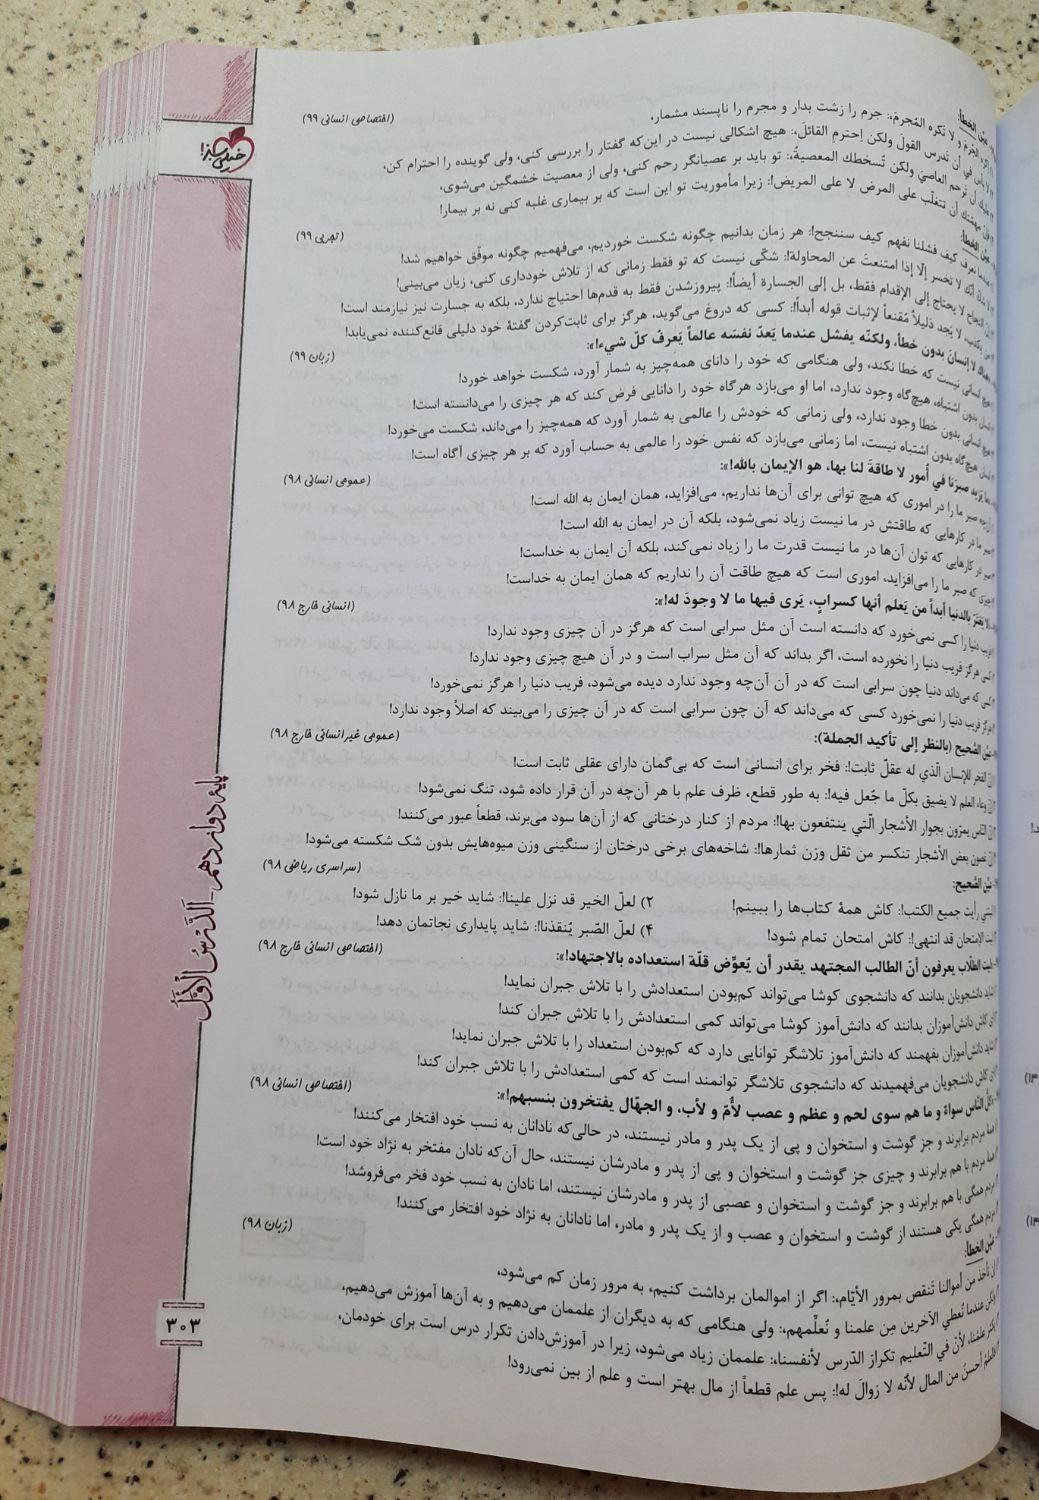 عيّن الخطأ:
اِکره الجُرم و لا تَکره المُجرمَ.: جرم را زشت بدار و مجرم را ناپسند مشمار،
(اختصاصی انسانی ۹۹)
لا بأس في أن تَدرس القولَ ولكن اِحترمِ القائلَ.: هیچ اشکالی نیست در این‌که گفتار را بررسی کنی، ولی گوینده را احترام کن،
عليك أن ترحم العاصيَ ولكن تُسخطك المعصيةُ،: تو باید بر عصیانگر رحم کنی، ولی از معصیت خشمگین می‌شوی،
فإنّ مهمّتك أن تتغلّب على المرض لا على المريض!: زیرا مأموریت تو این است که بر بیماری غلبه کنی نه بر بیمار!
عيّن الخطأ:
(تجربی ۹۹)
عندما نعرف كيف فشلنا نفهم كيف سننجح!: هر زمان بدانیم چگونه شکست خوردیم، می‌فهمیم چگونه موفّق خواهیم شد!
لا شكّ أنّك لا تخسر إلّا إذا امتنعتَ عن المحاولة!: شکّی نیست که تو فقط زمانی که از تلاش خودداری کنی، زیان می‌بینی!
إنّ النجاح لا يحتاج إلى الإقدام فقط، بل إلى الجسارة أيضاً!: پیروزشدن فقط به قدم‌ها احتیاج ندارد، بلکه به جسارت نیز نیازمند است!
من يكذب، لا يَجد دَليلاً مُقنعاً لإثبات قوله أبداً!: کسی که دروغ می‌گوید، هرگز برای ثابت‌کردن گفتهٔ خود دلیلی قانع‌کننده نمی‌یابد!
لا إنسانَ بدون خطأ، ولكنّه يفشل عندما يَعدّ نفسَه عالماً يَعرِفُ كلّ شيء!»:
(زبان ۹۹)
هیچ انسانی نیست که خطا نکند، ولی هنگامی که خود را دانای همه‌چیز به شمار آورد، شکست خواهد خورد!
انسان بدون اشتباه، هیچ‌گاه وجود ندارد، اما او می‌بازد هرگاه خود را دانایی فرض کند که هر چیزی را می‌دانسته است!
هیچ انسانی بدون خطا وجود ندارد، ولی زمانی که خودش را عالمی به شمار آورد که همه‌چیز را می‌داند، شکست می‌خورد!
انسان هیچ‌گاه بدون اشتباه نیست، اما زمانی می‌بازد که نفس خود را عالمی به حساب آورد که بر هر چیزی آگاه است!
يَزيد صبرَنا في أُمور لا طاقةَ لنا بها، هو الإيمان بالله!»:
(عمومی انسانی ۹۸)
آن‌چه صبر ما را در اموری که هیچ توانی برای آن‌ها نداریم، می‌افزاید، همان ایمان به الله است!
صبر ما در کارهایی که طاقتش در ما نیست زیاد نمی‌شود، بلکه آن در ایمان به الله است!
صبر در کارهایی که توان آن‌ها در ما نیست قدرت ما را زیاد نمی‌کند، بلکه آن ایمان به خداست!
چیزی که صبر ما را می‌افزاید، اموری است که هیچ طاقت آن را نداریم که همان ایمان به خداست!
بالدنيا أبداً من يَعلم أنها كسرابٍ، يَرى فيها ما لا وجودَ له!»:
(انسانی خارج ۹۸)
فریب دنیا را کسی نمی‌خورد که دانسته است آن مثل سرابی است که هرگز در آن چیزی وجود ندارد!
کسی هرگز فریب دنیا را نخورده است، اگر بداند که آن مثل سراب است و در آن هیچ چیزی وجود ندارد!
کسی که می‌داند دنیا چون سرابی است که در آن آن‌چه وجود ندارد دیده می‌شود، فریب دنیا را هرگز نمی‌خورد!
هرگز فریب دنیا را نمی‌خورد کسی که می‌داند که آن چون سرابی است که در آن چیزی را می‌بیند که اصلاً وجود ندارد!
عيّن الصّحيح (بالنظر إلى تأكيد الجملة):
(عمومی غیرانسانی خارج ۹۸)
إنّ الفخر للإنسان الّذي له عقلٌ ثابت!: فخر برای انسانی است که بی‌گمان دارای عقلی ثابت است!
إنّ وعاء العلم لا يضيق بكلّ ما جُعل فيه!: به طور قطع، ظرف علم با هر آن‌چه در آن قرار داده شود، تنگ نمی‌شود!
إنّ النّاس يمرّون بجوار الأشجار الّتي ينتفعون بها!: مردم از کنار درختانی که از آن‌ها سود می‌برند، قطعاً عبور می‌کنند!
إنّ غصون بعض الأشجار تنكسر من ثقل وزن ثمارها!: شاخه‌های برخی درختان از سنگینی وزن میوه‌هایش بدون شک شکسته می‌شود!
عيّن الصّحيح:
(سراسری ریاضی ۹۸)
ليتني رأيت جميع الكتب!: کاش همهٔ کتاب‌ها را ببینم!
۲) لعلّ الخير قد نزل علينا!: شاید خیر بر ما نازل شود!
ليت الإمتحان قد انتهى!: کاش امتحان تمام شود!
۴) لعلّ الصّبر يُنقذنا!: شاید پایداری نجاتمان دهد!
ليت الطلّاب يعرفون أنّ الطالب المجتهد يقدر أن يُعوِّض قلّة استعداده بالاجتهاد!»:
(اختصاصی انسانی خارج ۹۸)
شاید دانشجویان بدانند که دانشجوی کوشا می‌تواند کم‌بودن استعدادش را با تلاش جبران نماید!
ای کاش دانش‌آموزان بدانند که دانش‌آموز کوشا می‌تواند کمی استعدادش را با تلاش جبران کند!
شاید دانش‌آموزان بفهمند که دانش‌آموز تلاشگر توانایی دارد که کم‌بودن استعداد را با تلاش جبران نماید!
ای کاش دانشجویان می‌فهمیدند که دانشجوی تلاشگر توانمند است که کمی استعدادش را با تلاش جبران کند!
النّاس سواءٌ و ما هم سوى لحم و عظم و عصب لأُمّ و لأب، و الجهّال يفتخرون بنسبهم!»:
(اختصاصی انسانی ۹۸)
مردم برابرند و جز گوشت و استخوان و پی از یک پدر و مادر نیستند، در حالی‌که نادانان به نسب خود افتخار می‌کنند!
مردم با هم برابرند و چیزی جز گوشت و استخوان و پی از پدر و مادرشان نیستند، حال آن‌که نادان مفتخر به نژاد خود است!
مردم همگی با هم برابرند و جز گوشت و استخوان و عصبی از پدر و مادرشان نیستند، اما نادان به نسب خود فخر می‌فروشد!
مردم همگی یکی هستند از گوشت و استخوان و عصب و از یک پدر و مادر، اما نادانان به نژاد خود افتخار می‌کنند!
عيّن الخطأ:
(زبان ۹۸)
إن نأخذ من أموالنا تَنقص بمرور الأيّام،: اگر از اموالمان برداشت کنیم، به مرور زمان کم می‌شود،
ولكن عندما نُعطي الآخرين مِن علمنا و نُعلِّمهم،: ولی هنگامی که به دیگران از علممان می‌دهیم و به آن‌ها آموزش می‌دهیم،
يكثر علمُنا، لأنّ في التّعليم تكرارَ الدّرس لأنفسنا،: علممان زیاد می‌شود، زیرا در آموزش‌دادن تکرار درس است برای خودمان،
فالعلمُ أحسنُ من المال لأنّه لا زوالَ له!: پس علم قطعاً از مال بهتر است و علم از بین نمی‌رود!
خیلی سبز!
پایهٔ دوازدهم - اَلدَّرْسُ الْأَوَّلُ
۳۰۳